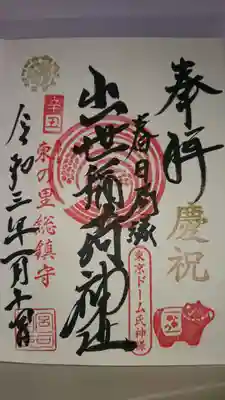 奉拝
慶祝
春日局縁
東京ドーム氏神様
出世稲荷神社
辛丑
東の里総鎮守
令和三年一月十